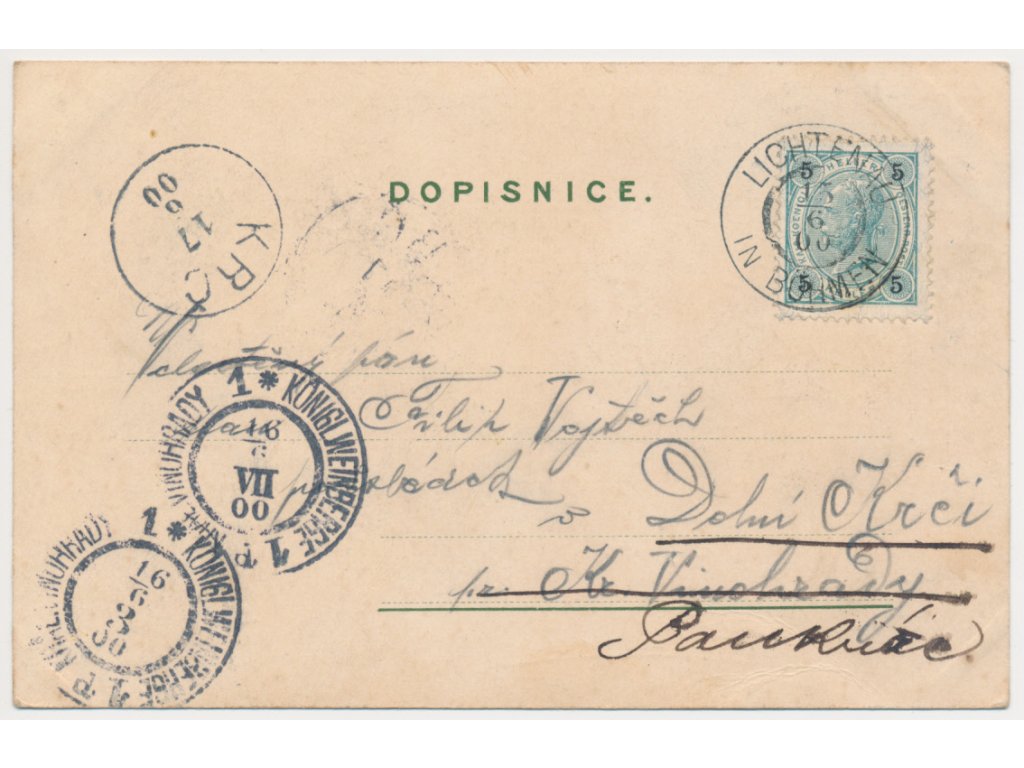 DOPISNICE.
LICHTENAU
IN BÖHMEN
15
6
00
5 HELLER 5
5 5
KRČ
17
6
00
Velectěný pán
Pan Filip Vojtěch
v Dolní Krči
pr. Kr. Vinohrady
Pankrác
1 * KÖNIGL. WEINBERGE 1
KRÁL. VINOHRADY
16
6
VII
00
1 * KÖNIGL. WEINBERGE 1
KRÁL. VINOHRADY
16
6
00